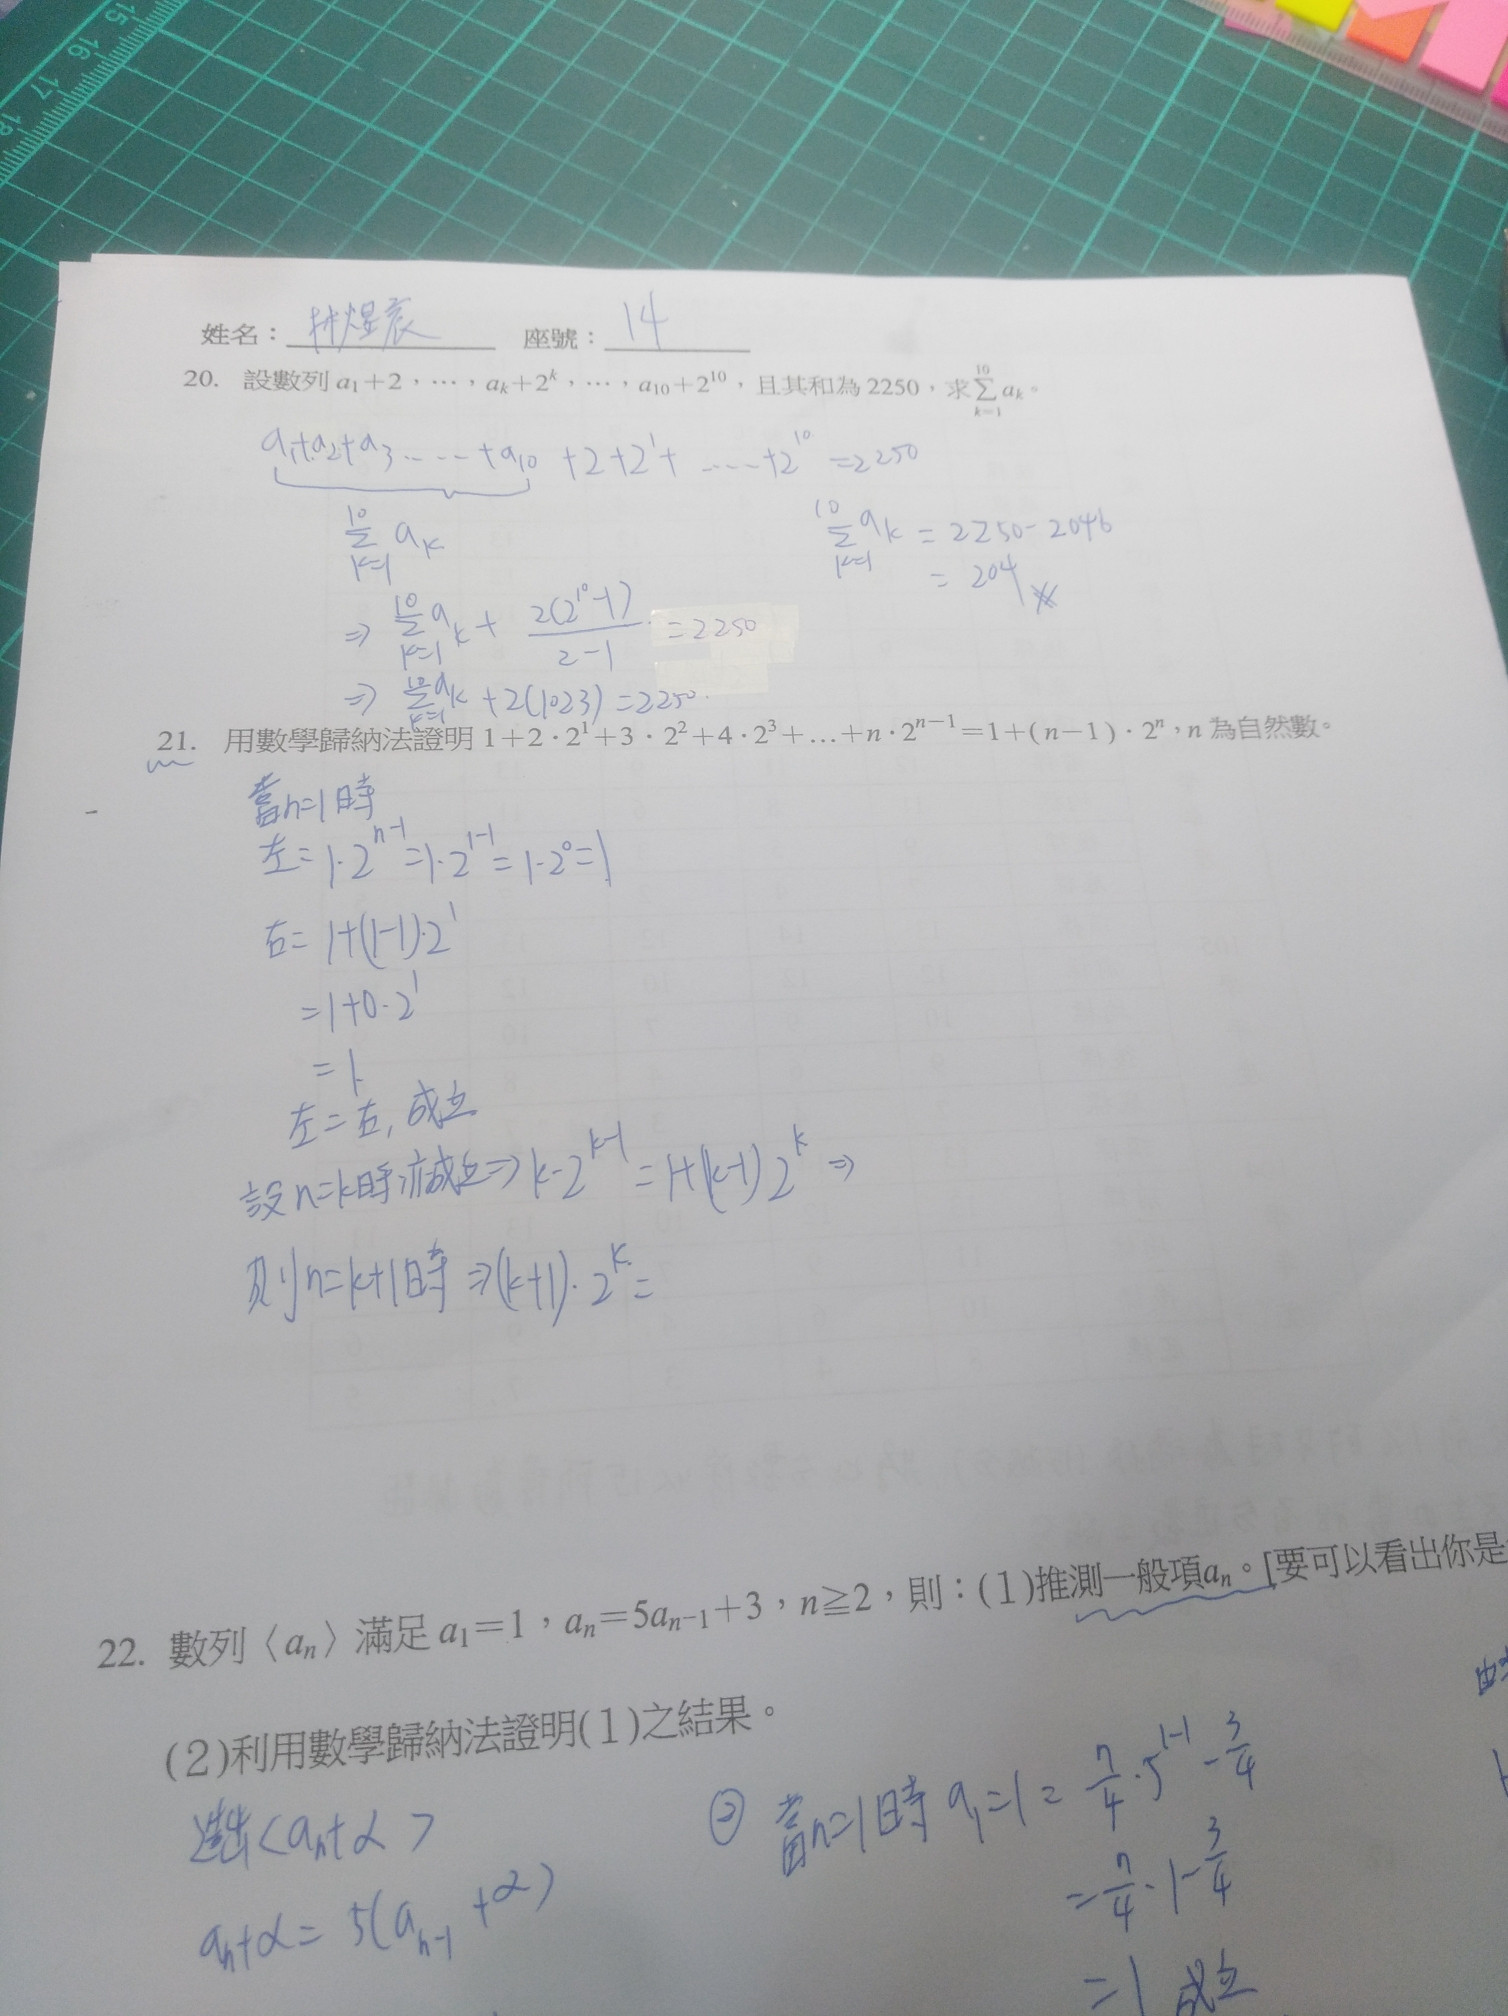 姓名：林煜宸 座號：14
20. 設數列 a₁+2，⋯，aₖ+2ᵏ，⋯，a₁₀+2¹⁰，且其和為 2250，求 ∑_{k=1}^{10} aₖ。
a₁+a₂+a₃⋯⋯+a₁₀+2+2¹+⋯⋯+2¹⁰=2250
∑_{k=1}^{10} aₖ
∑_{k=1}^{10} aₖ=2250-2046
=204
⇒ ∑_{k=1}^{10} aₖ+2(2¹⁰-1)/2-1=2250
⇒ ∑_{k=1}^{10} aₖ+2(1023)=2250
21. 用數學歸納法證明 1+2·2¹+3·2²+4·2³+…+n·2ⁿ⁻¹=1+(n-1)·2ⁿ，n 為自然數。
當n=1時
左=1·2ⁿ⁻¹=1·2¹⁻¹=1·2⁰=1
右=1+(1-1)·2¹
=1+0·2¹
=1
左=右,成立
設n=k時 成立⇒k·2ᵏ⁻¹=1+(k-1)2ᵏ⇒
則n=k+1時⇒(k+1)·2ᵏ=
22. 數列〈aₙ〉滿足 a₁=1，aₙ=5aₙ₋₁+3，n≧2，則：(1)推測一般項aₙ。[要可以看出你是
(2)利用數學歸納法證明(1)之結果。
造出<aₙ+α>
aₙ+α=5(aₙ₋₁+α)
② 當n=1時 a₁=1=7/4·5¹⁻¹-3/4
=7/4·1-3/4
=1 成立
15
16
17
18